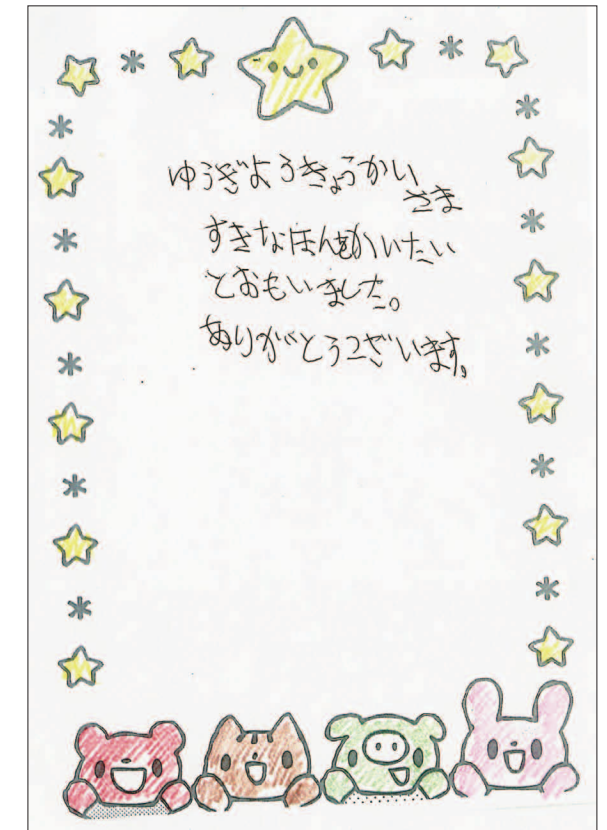 ゆうぎようきょうかい
さま
すきなほんをかいたい
とおもいました。
ありがとうございます。